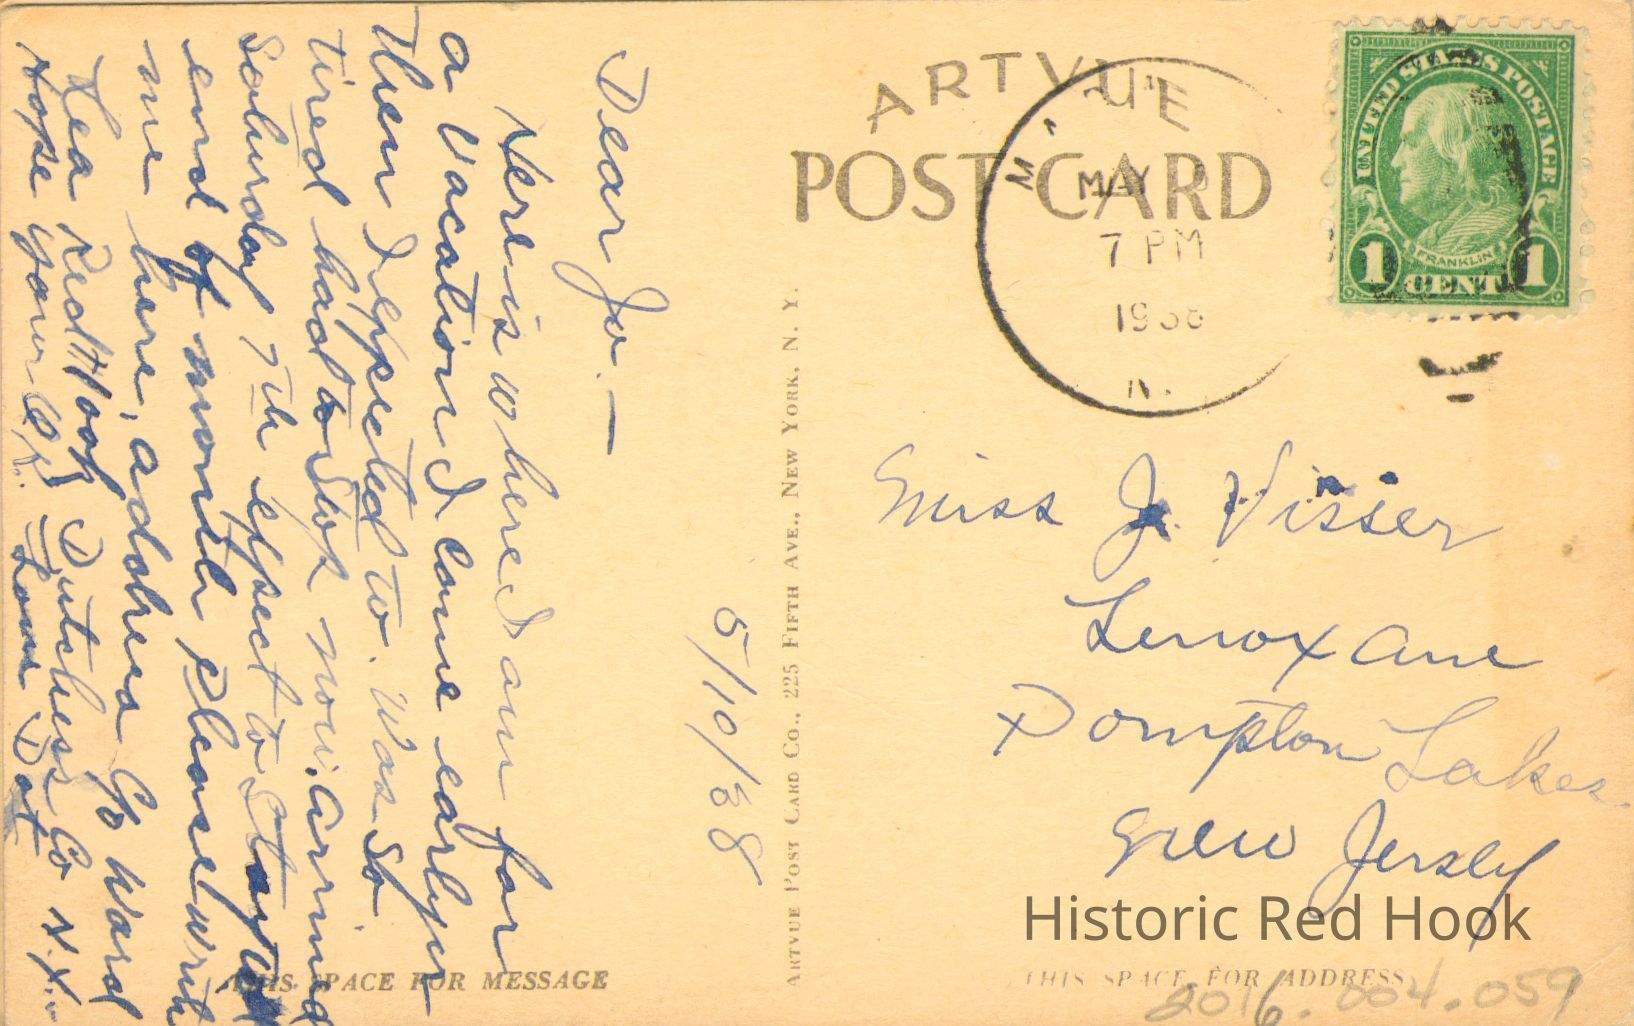 5/10/38
Dear Jo. —
Here is where I am for
a vacation I came earlyer
then I expected to. was so
tired had to stop now. arrived
Saturday 7th expect to stay to
end of month please write
me here, address C/o Ward
Lea Red Hook Dutchess Co N.Y.
Hope your O.K. Love Dot
ARTVUE
POST CARD
MAY
7 PM
1938
N.
UNITED STATES POSTAGE
FRANKLIN
1 CENT 1
ARTVUE POST CARD CO., 225 FIFTH AVE., NEW YORK, N. Y.
Miss J. Visser
Lenox Ave
Pompton Lakes.
New Jersey
Historic Red Hook
THIS SPACE FOR MESSAGE
THIS SPACE FOR ADDRESS
2016.004.059